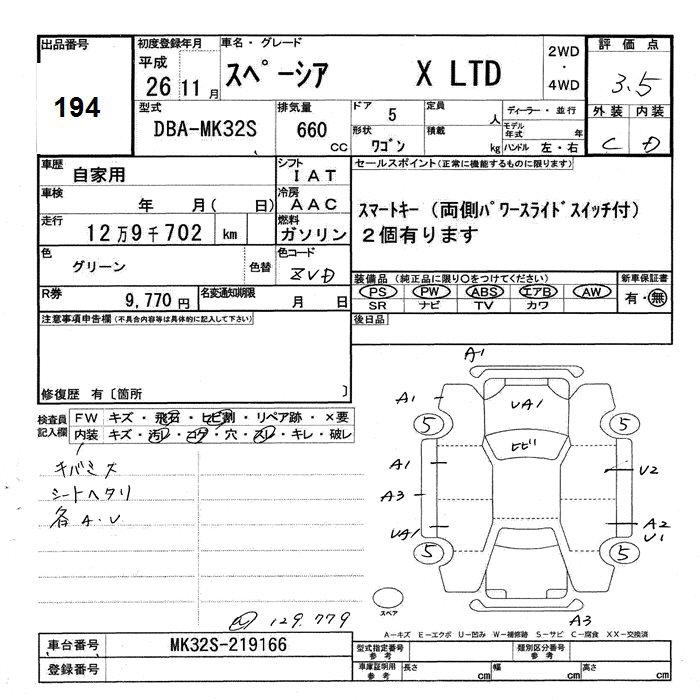 出品番号
194
初度登録年月
平成
26 11 月
車名・グレード
スペーシア X LTD
2WD
・
4WD
評価点
3.5
外装 内装
C D
型式
DBA-MK32S
排気量
660 CC
ドア 5
形状 ワゴン
定員 人
積載 kg
ディーラー・並行
モデル年式 年
ハンドル 左・右
車歴 自家用
シフト IAT
車検 年 月( 日)
冷房 AAC
走行 12万9千702 km
燃料 ガソリン
色 グリーン 色替
色コード ZVD
R券 9,770円
名変通知期限 月 日
セールスポイント(正常に機能するものに限ります)
スマートキー(両側パワースライドスイッチ付)
2個有ります
装備品(純正品に限り○をつけてください)
PS PW ABS エアB AW
SR ナビ TV カワ
新車保証書
有・無
後日品
注意事項申告欄(不具合内容等は具体的に記入して下さい)
修復歴 有〔箇所 〕
検査員記入欄
FW キズ・飛石・ヒビ割・リペア跡・×要
内装 キズ・汚レ・コゲ・穴・スレ・キレ・破レ
キバミ大
シートヘタリ
各A.U
129.779
A1
A1
UA1
5
5
ヒビ
A1
U2
A3
UA1
A2
U1
5
5
スペア
A3
A-キズ E-エクボ U-凹み W-補修跡 S-サビ C-腐食 XX-交換済
車台番号 MK32S-219166
登録番号
型式指定番号 参考
類別区分番号 参考
車庫証明用 参考
長さ cm 幅 cm 高さ cm